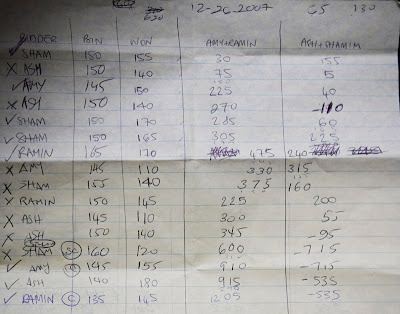 630 12-26-2007 65 130
BIDDER BIN WON AMY+RAMIN ASH+SHAMIM
✓ SHAM 150 155 30 155
X ASH 150 140 75 5
✓ AMY 145 150 225 40
X ASH 150 140 270 -110
✓ SHAM 150 170 285 60
✓ SHAM 150 165 305 225
✓ RAMIN 165 170 475 240
X AMY 145 110 330 315
X SHAM 155 140 375 160
X RAMIN 150 145 225 200
X ASH 145 110 300 55
X ASH 150 140 345 -95
X SHAM 160 120 600 -715
✓ AMY 145 155 910 -715
✓ ASH 140 180 915 -535
✓ RAMIN C 135 145 1205 -535